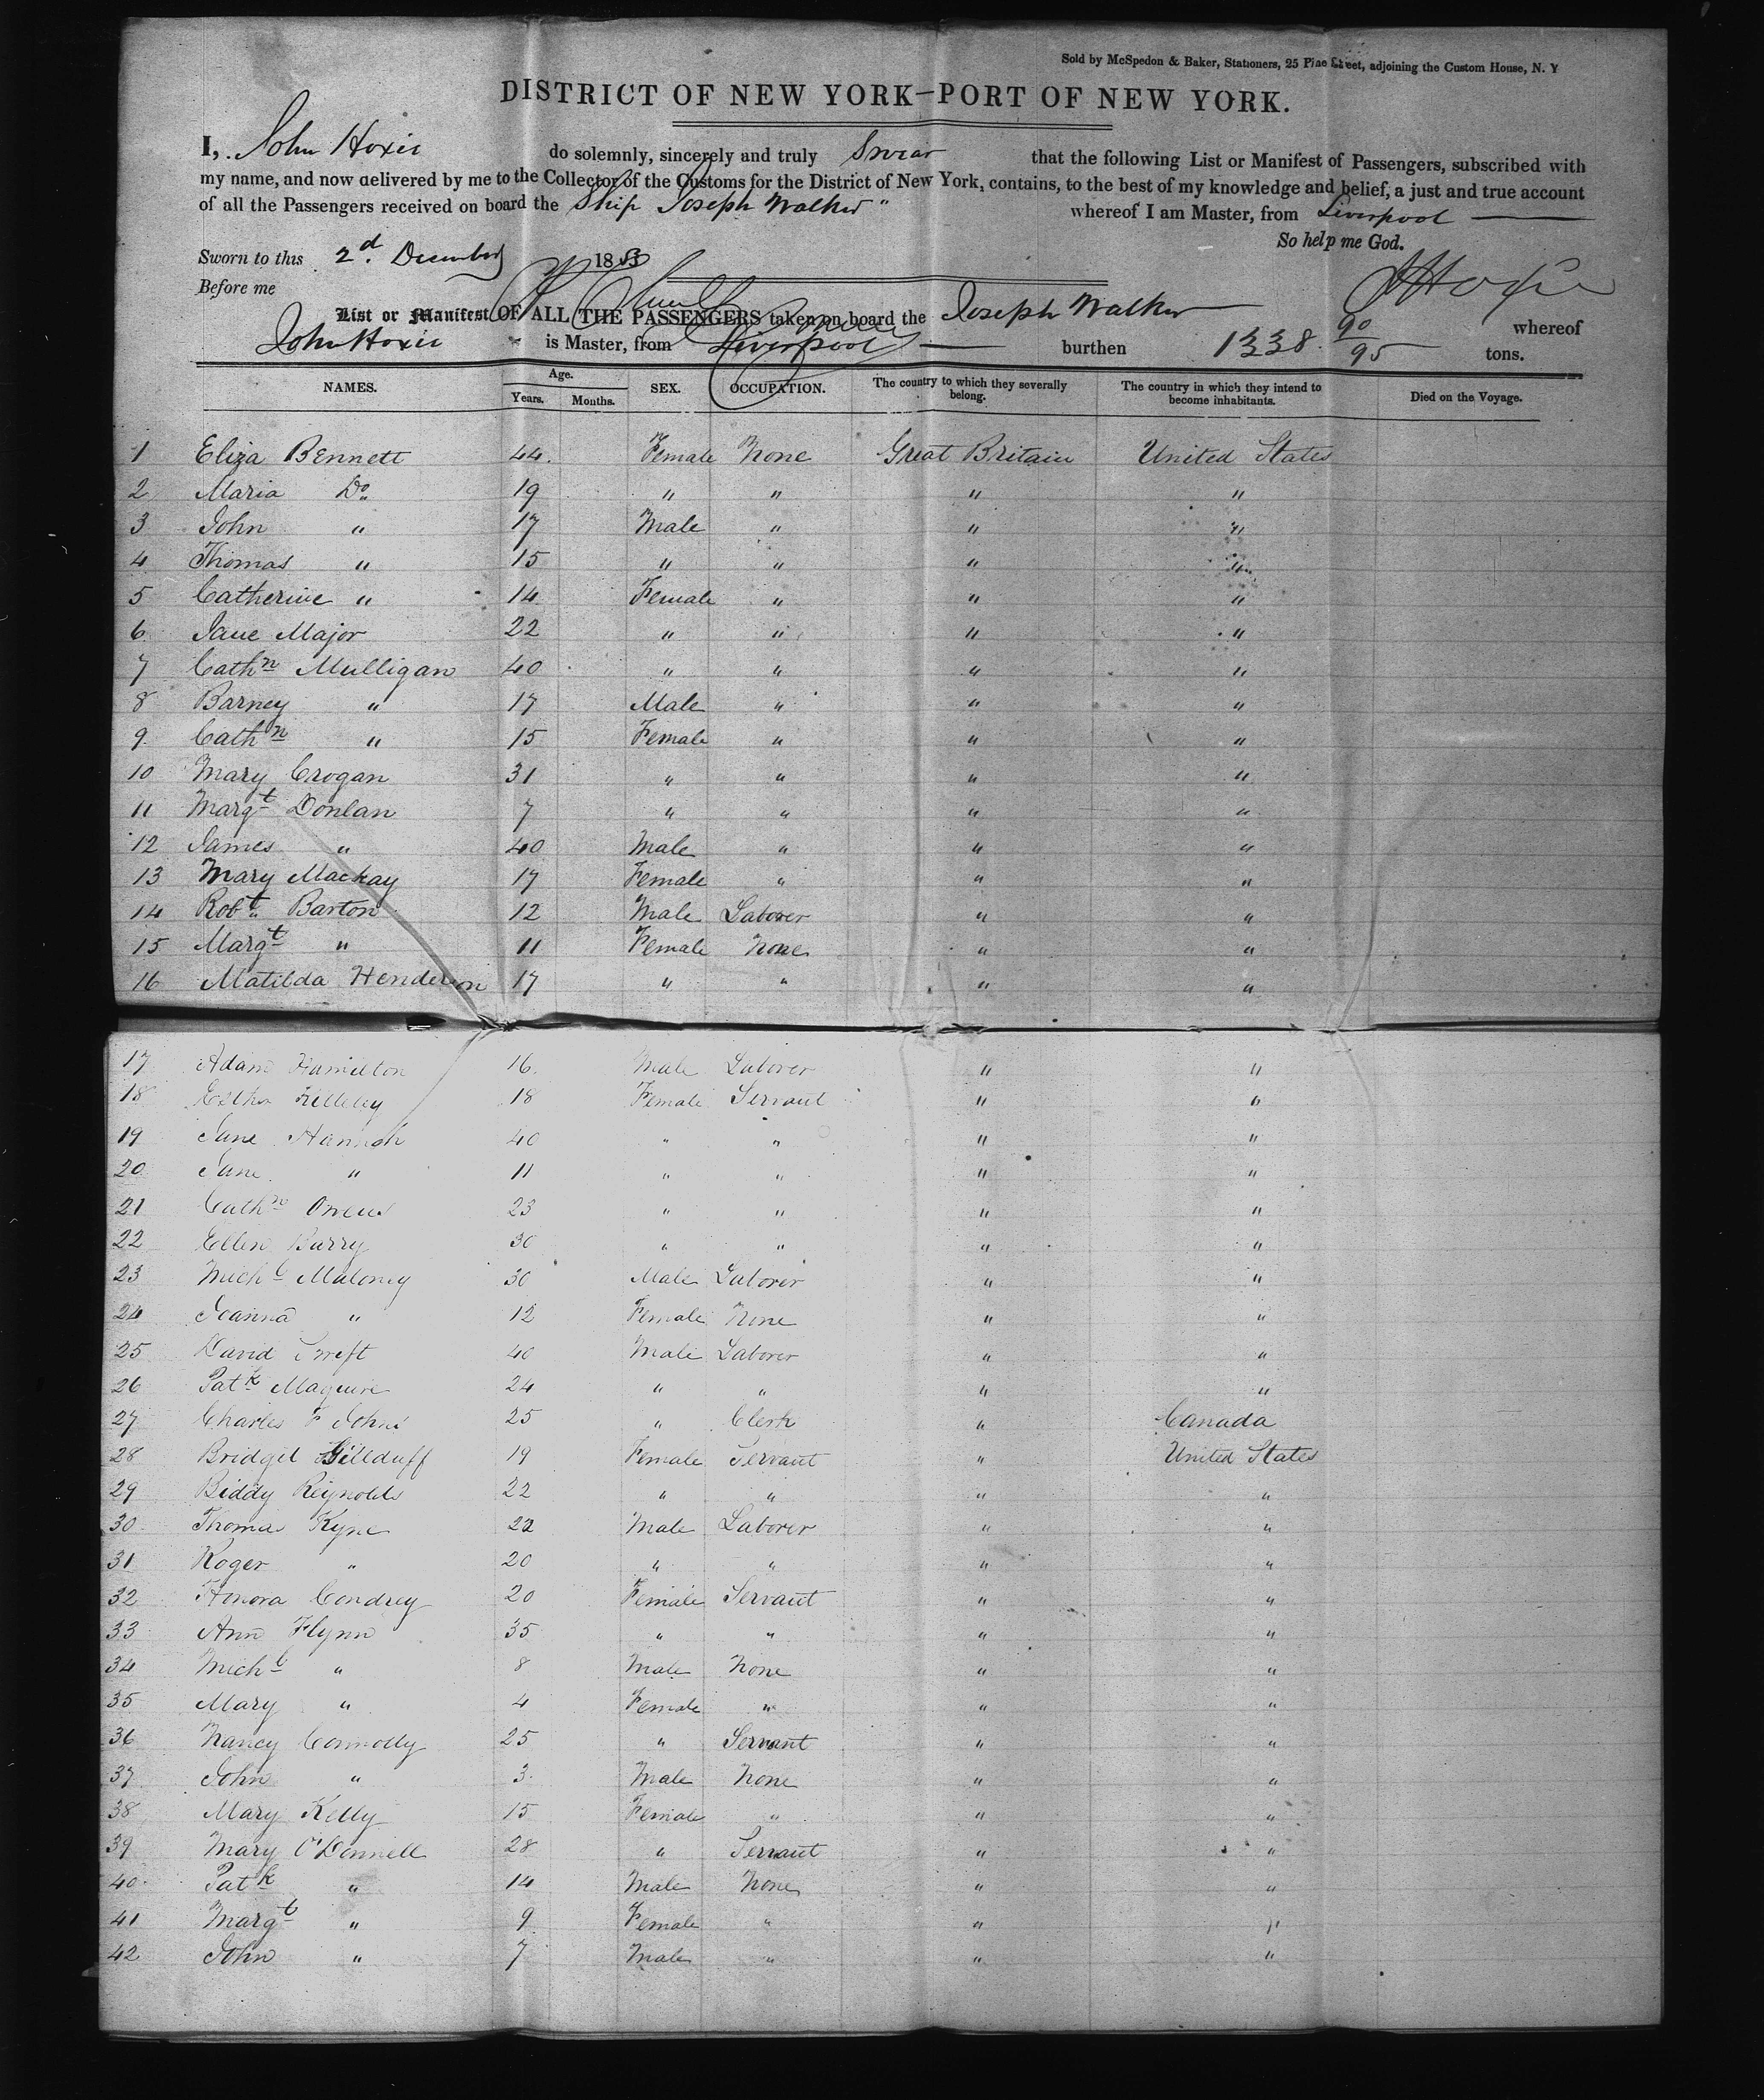 Sold by McSpedon & Baker, Stationers, 25 Pine Street, adjoining the Custom House, N. Y
DISTRICT OF NEW YORK—PORT OF NEW YORK.
I, John Hoxie do solemnly, sincerely and truly Swear that the following List or Manifest of Passengers, subscribed with
my name, and now delivered by me to the Collector of the Customs for the District of New York, contains, to the best of my knowledge and belief, a just and true account
of all the Passengers received on board the Ship Joseph Walker " whereof I am Master, from Liverpool
So help me God.
Sworn to this 2d. December 1853
J Hoxie
Before me
List or Manifest OF ALL THE PASSENGERS taken on board the Joseph Walker whereof
John Hoxie is Master, from Liverpool burthen 1338. 90/95 tons.
NAMES. Age. Years. Months. SEX. OCCUPATION. The country to which they severally belong. The country in which they intend to become inhabitants. Died on the Voyage.
1 Eliza Bennett 44. Female None Great Britain United States
2 Maria Do 19 " " " "
3 John " 17 Male " " "
4 Thomas " 15 " " " "
5 Catherine " 14 Female " " "
6 Jane Major 22 " " " "
7 Cathn Mulligan 40 " " " "
8 Barney " 17 Male " " "
9 Cathn " 15 Female " " "
10 Mary Crogan 31 " " " "
11 Margt Donlan 7 " " " "
12 James " 40 Male " " "
13 Mary Mackay 17 Female " " "
14 Robt Barton 12 Male Laborer " "
15 Margt " 11 Female None " "
16 Matilda Henderson 17 " " " "
17 Adam Hamilton 16. Male Laborer " "
18 Esther Killeley 18 Female Servant " "
19 Jane Hannah 40 " " " "
20 Jane " 11 " " " "
21 Cathn Owens 23 " " " "
22 Ellen Barry 30 " " " "
23 Michl Maloney 30 Male Laborer " "
24 Joanna " 12 Female None " "
25 David Swift 40 Male Laborer " "
26 Patk Maguire 24 " " " "
27 Charles F Johns 25 " Clerk " Canada
28 Bridget Gillduff 19 Female Servant " United States
29 Biddy Reynolds 22 " " " "
30 Thomas Kyne 22 Male Laborer " "
31 Roger " 20 " " " "
32 Honora Condrey 20 Female Servant " "
33 Ann Flynn 35 " " " "
34 Michl " 8 Male None " "
35 Mary " 4 Female " " "
36 Nancy Connolly 25 " Servant " "
37 John " 3. Male None " "
38 Mary Kelly 15 Female " " "
39 Mary O'Donnell 28 " Servant " "
40 Patk " 14 Male None " "
41 Margt " 9 Female " " "
42 John " 7 Male " " "